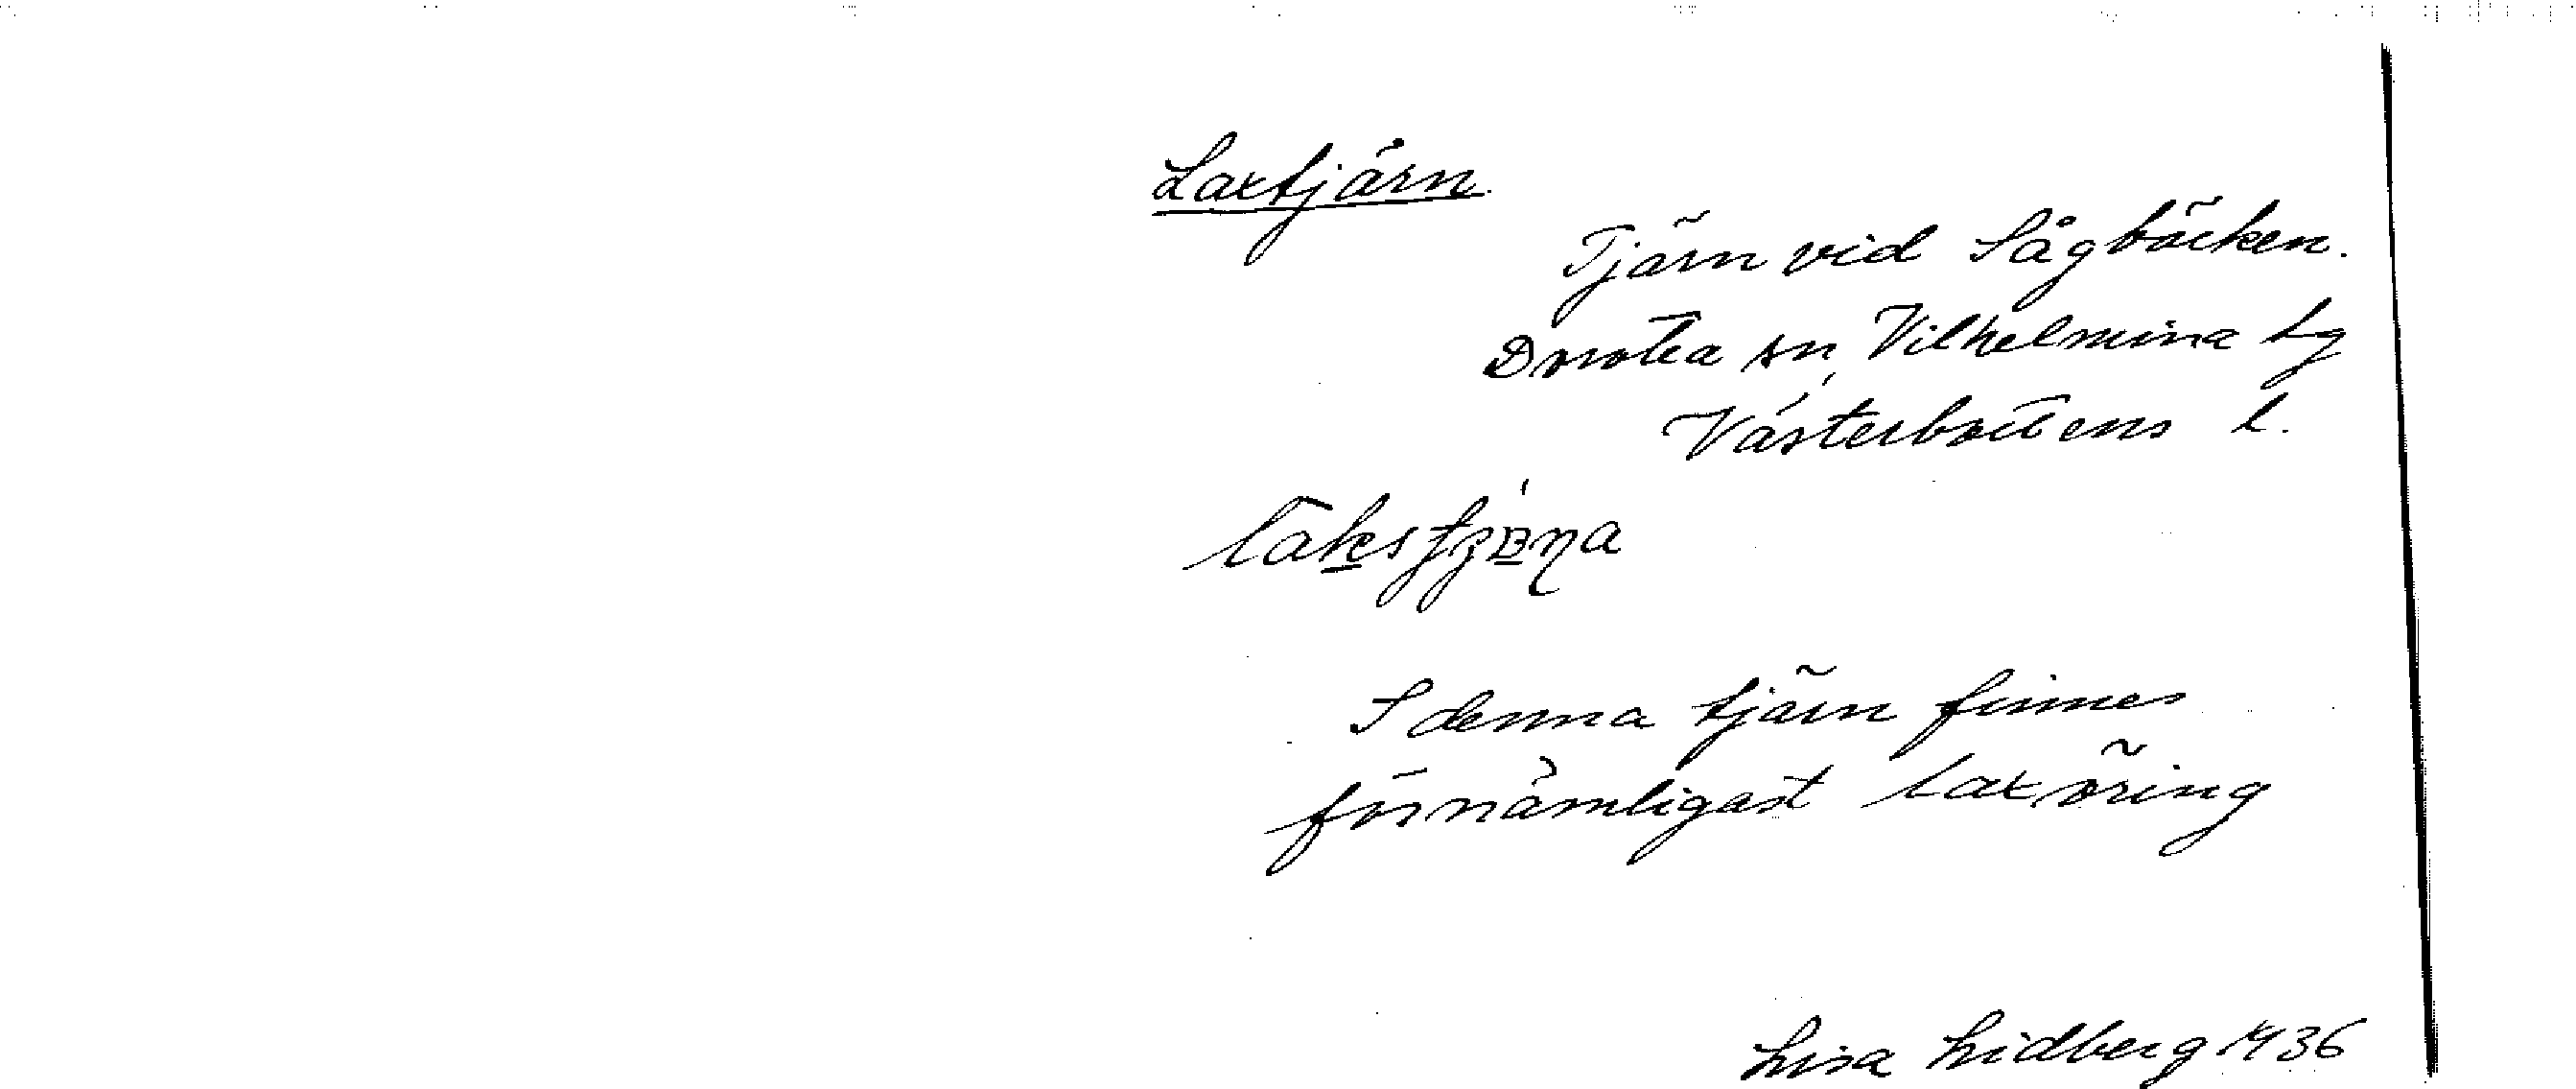 Laxtjärn
Tjärn vid Sågbäcken.
Dorotea sn, Vilhelmina tg
Västerbottens l.
I denna tjärn finnes
förnämligast laxöring
Lisa Lidberg 1936